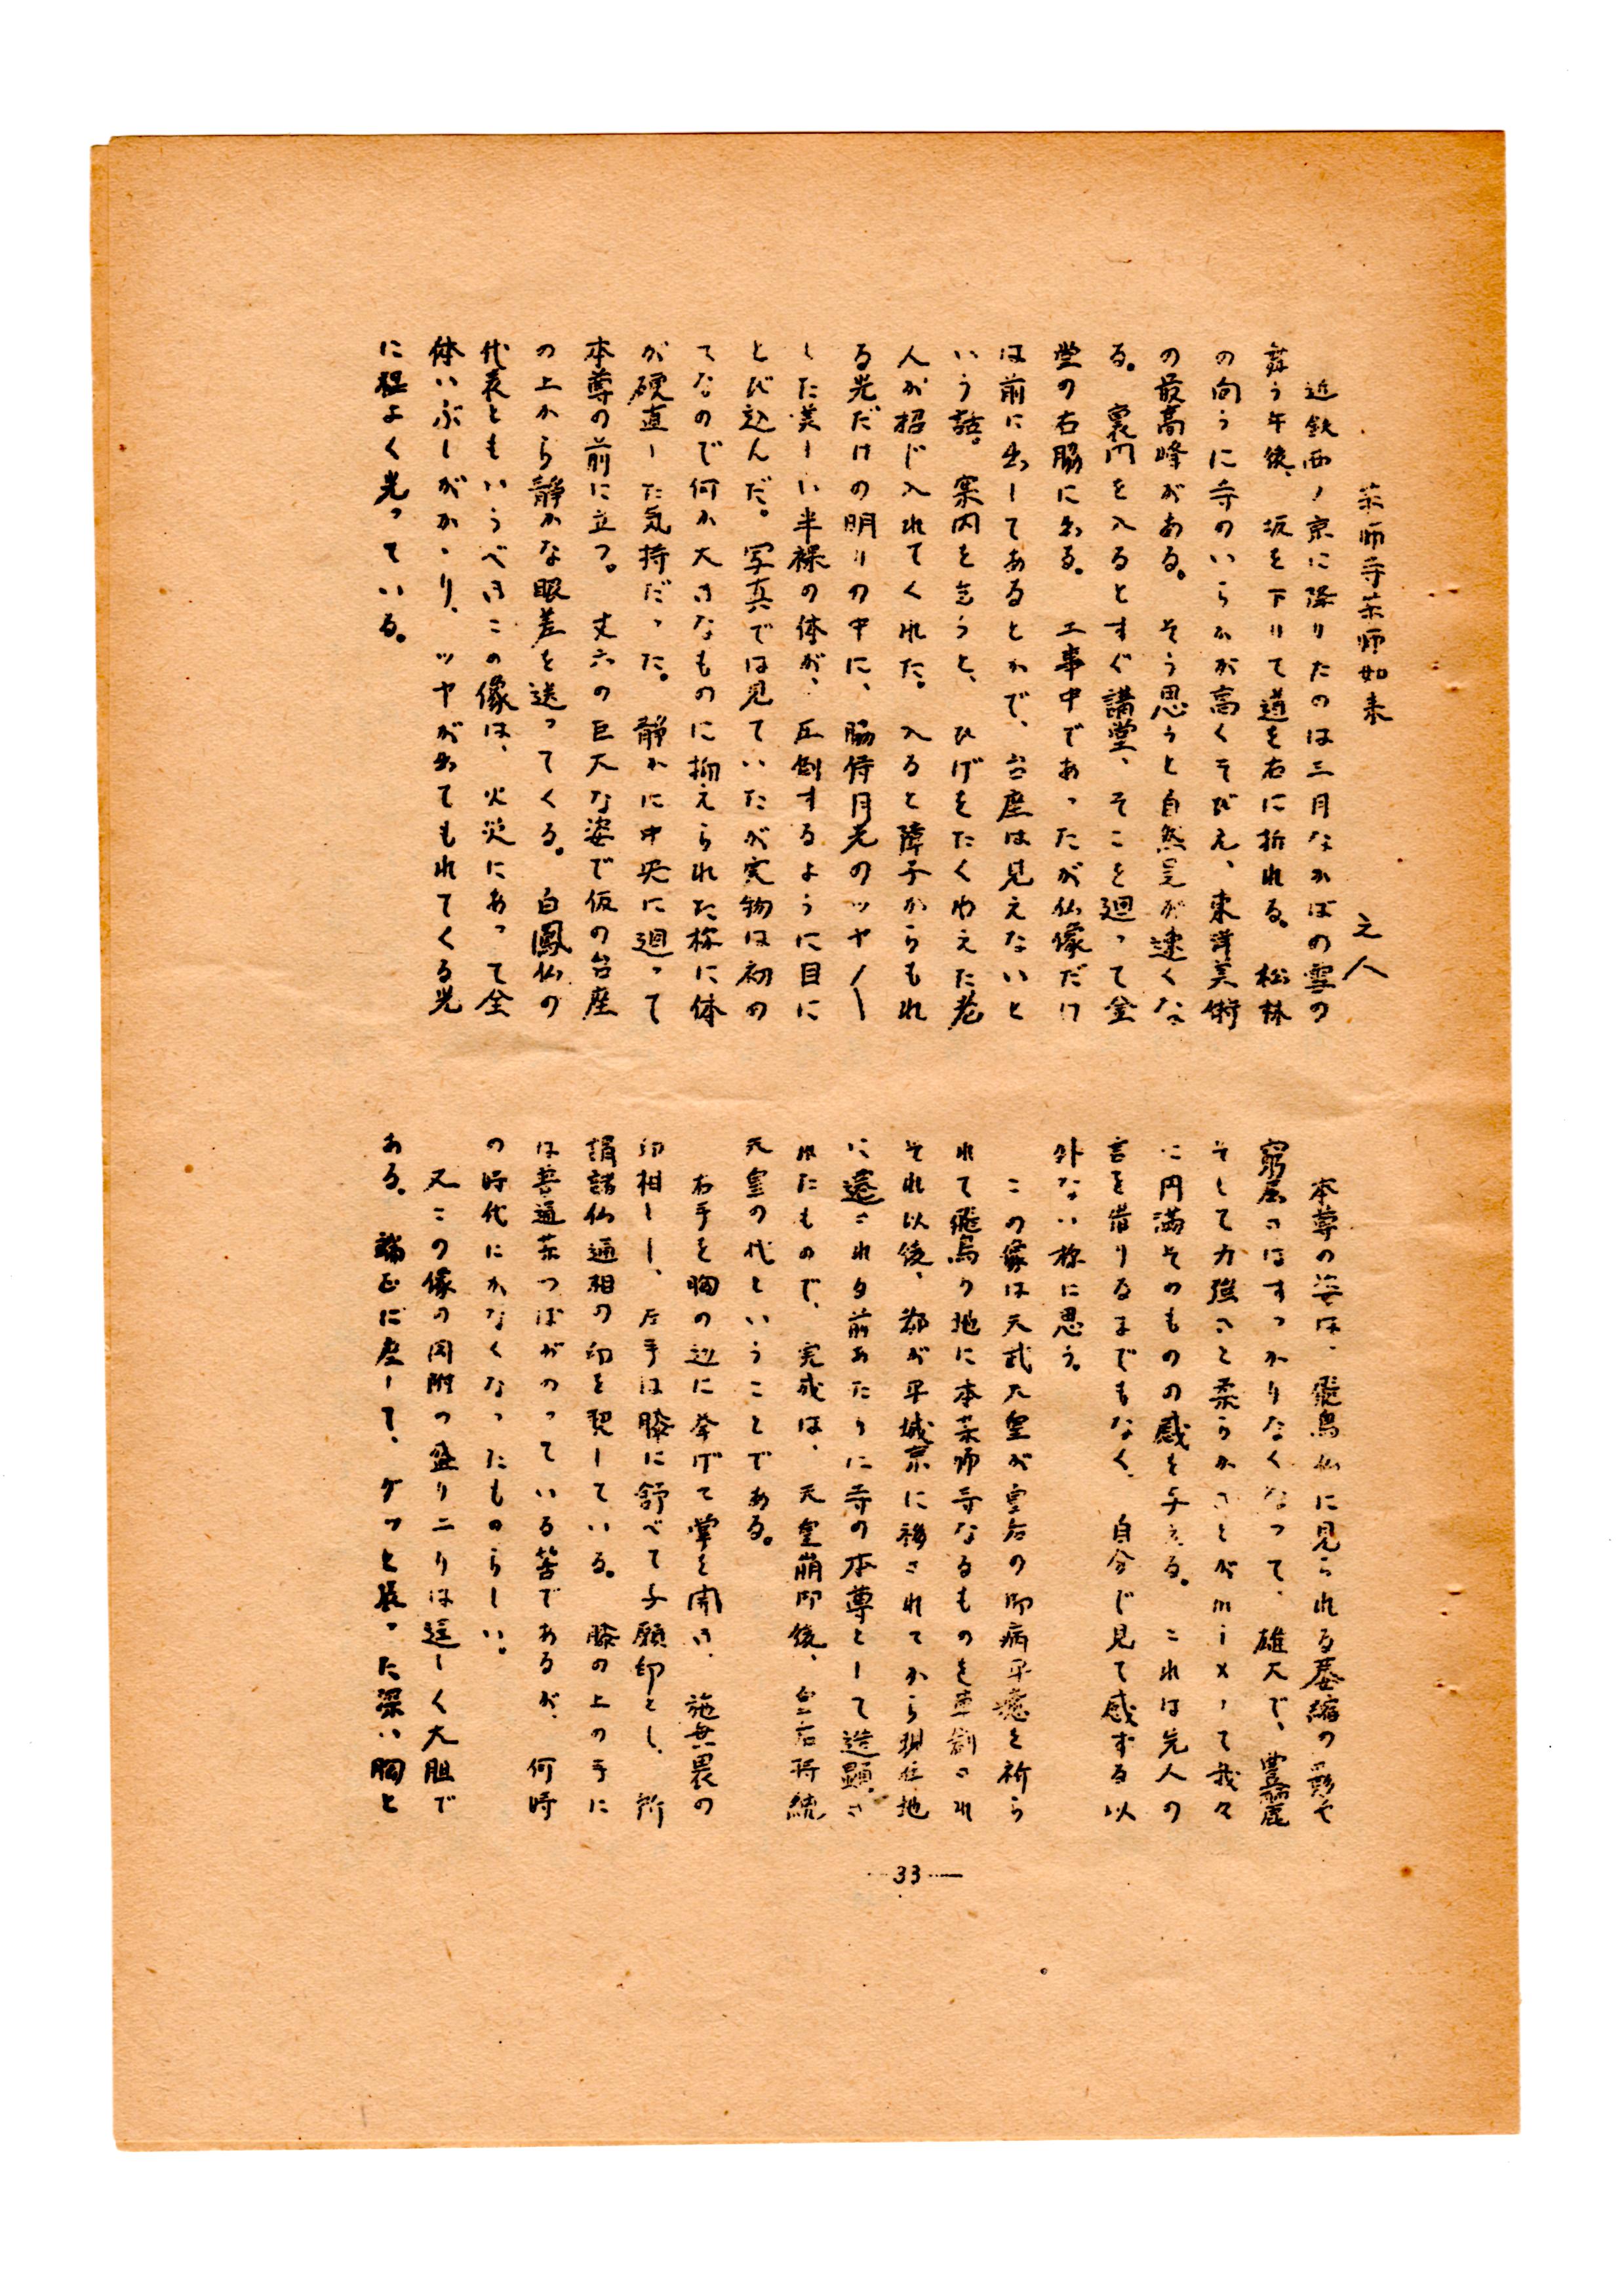 薬師寺薬師如来
之人
近鉄西ノ京に降りたのは三月なかばの雪の
舞う午後、坂を下りて道を右に折れる。松林
の向うに寺のいらかが高くそびえ、東洋美術
の最高峰がある。そう思うと自然足が速くな
る。裏門を入るとすぐ講堂、そこを廻って金
堂の右脇に出る。工事中であったが仏像だけ
は前に出してあるとかで、台座は見えないと
いう話。案内を乞うと、ひげをたくわえた老
人が招じ入れてくれた。入ると障子からもれ
る光だけの明りの中に、脇侍月光のツヤ〳〵
した美しい半裸の体が、圧倒するように目に
とび込んだ。写真では見ていたが実物は初め
てなので何か大きなものに抑えられた様に体
が硬直した気持だった。静かに中央に廻って
本尊の前に立つ。丈六の巨大な姿で仮の台座
の上から静かな眼差を送ってくる。白鳳仏の
代表ともいうべきこの像は、火災にあって全
体いぶしがかゝり、ツヤが出てもれてくる光
に程よく光っている。
本尊の姿は、飛鳥仏に見られる萎縮の影や
窮屈さはすっかりなくなって、雄大で、豊麗
そして力強さと柔らかさとがmixして我々
に円満そのものの感を与える。これは先人の
言を借りるまでもなく、自分で見て感ずる以
外ない様に思う。
この像は天武天皇が皇后の御病平癒を祈ら
れて飛鳥の地に本薬師寺なるものを草創され
それ以後、都が平城京に移されてから現在地
に遷される前あたりに寺の本尊として造顕さ
れたもので、完成は、天皇崩御後、皇后持統
天皇の代ということである。
右手を胸の辺に挙げて掌を開き、施無畏の
印相とし、左手は膝に舒べて与願印とし、所
謂諸仏通相の印を契している。膝の上の手に
は普通薬つぼがのっている筈であるが、何時
の時代にかなくなったものらしい。
又この像の肉附の盛り上りは逞しく大胆で
ある。端正に座して、グッと張った深い胸と
—33—